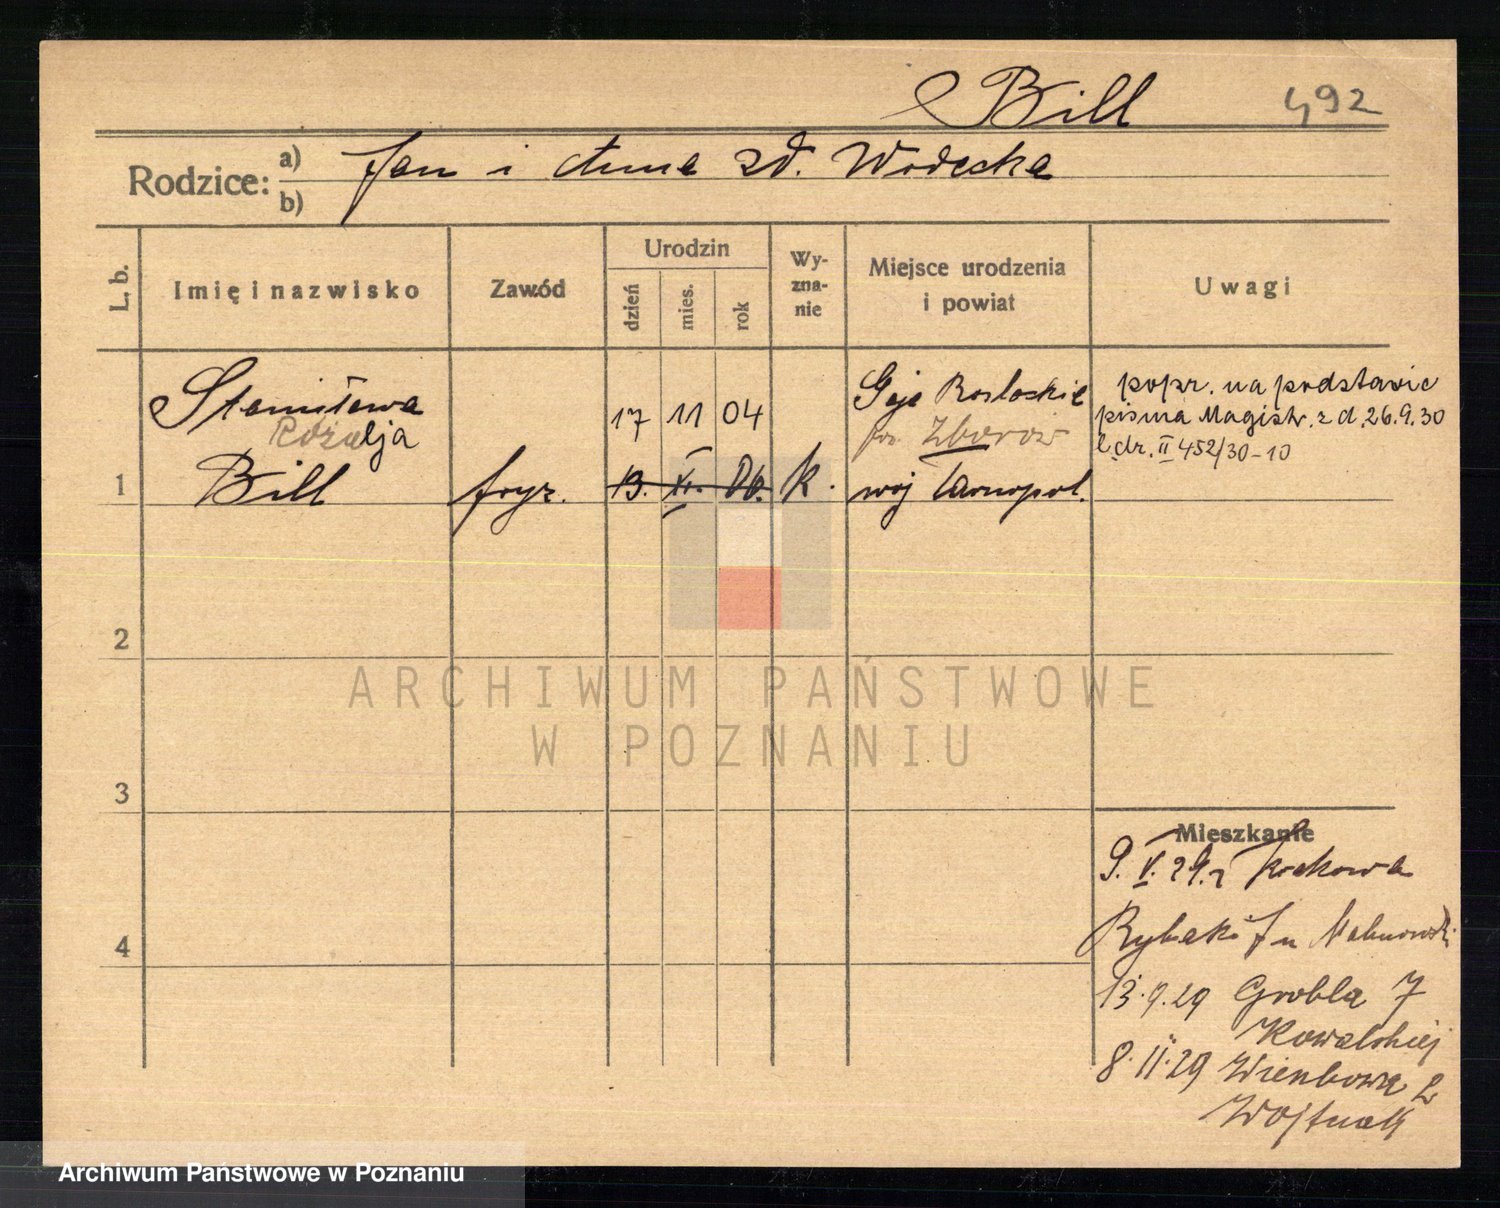 Bill 492
Rodzice: a) Jan i Anna zd. Wodecka
b)
L. b.
Imię i nazwisko
Zawód
Urodzin
dzień
mies.
rok
Wy-
zna-
nie
Miejsce urodzenia
i powiat
Uwagi
Stanisława
Rozalja
1 Bill
fryz.
17 11 04
13. XI. 06.
k.
Gaje Rosłockie
pow. Zborów
woj Tarnopol.
popr. na podstawie
pisma Magistr. z d. 26.9.30
l. dz. II 452/30-10
2
3
4
Mieszkanie
9. V. 29.
Rybaki 7 u Malinowski
13.9.29 Grobla 7
Kowalskiej
8.11.29
Wojtuak
ARCHIWUM PAŃSTWOWE
W POZNANIU
Archiwum Państwowe w Poznaniu